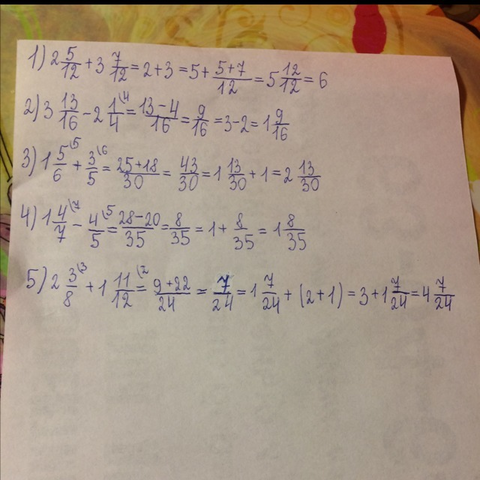 1) 2 5/12 + 3 7/12 = 2 + 3 = 5 + (5+7)/12 = 5 12/12 = 6
2) 3 13/16 - 2 1\4/4 = (13-4)/16 = 9/16 = 3-2 = 1 9/16
3) 1 5\5/6 + 3\6/5 = (25+18)/30 = 43/30 = 1 13/30 + 1 = 2 13/30
4) 1 4\7/7 - 4\5/5 = (28-20)/35 = 8/35 = 1 + 8/35 = 1 8/35
5) 2 3\3/8 + 1 11\2/12 = (9+22)/24 = 7/24 = 1 7/24 + (2+1) = 3 + 1 7/24 = 4 7/24